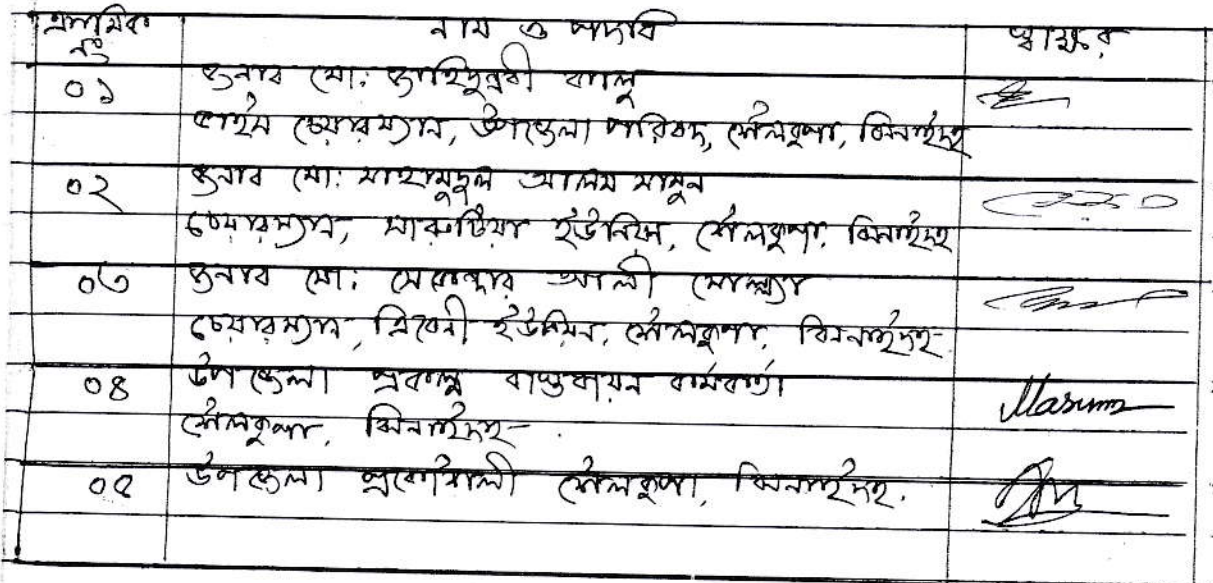 ক্রমিক নং
নাম ও পদবি
স্বাক্ষর
০১
জনাব মো: জাহিদুন্নবী কালু
ভাইস চেয়ারম্যান, উপজেলা পরিষদ, শৈলকুপা, ঝিনাইদহ
০২
জনাব মো: মাহামুদুল আলম মামুন
চেয়ারম্যান, সারুটিয়া ইউনিয়ন, শৈলকুপা, ঝিনাইদহ
০৩
জনাব মো: সেকান্দার আলী মোল্ল্যা
চেয়ারম্যান, ত্রিবেনী ইউনিয়ন, শৈলকুপা, ঝিনাইদহ
০৪
উপজেলা প্রকল্প বাস্তবায়ন কর্মকর্তা
শৈলকুপা, ঝিনাইদহ
Masum
০৫
উপজেলা প্রকৌশলী শৈলকুপা, ঝিনাইদহ.